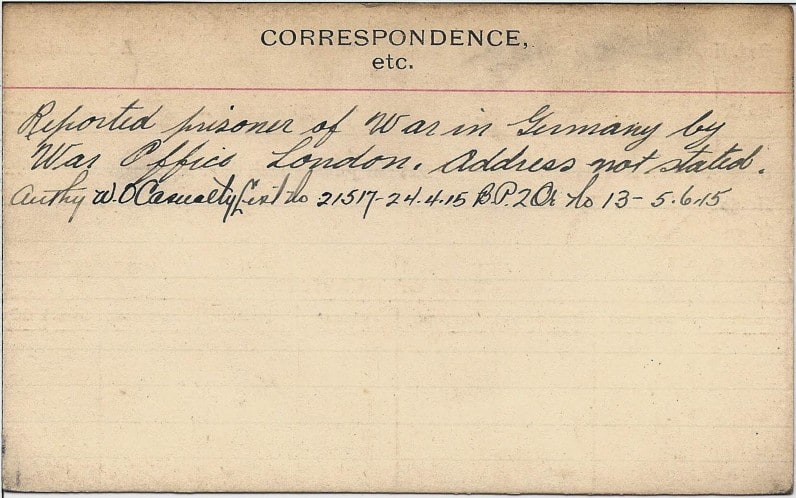 CORRESPONDENCE,
etc.
Reported prisoner of War in Germany by
War Office London. Address not stated.
Authy W.O Casualty List No 21517-24.4.15 B.P. 2 Or No 13-5.6.15